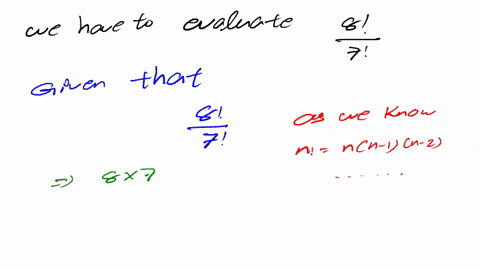 we have to evaluate 8!/7!
Given that
8!/7!
as we know
n! = n(n-1)(n-2)
.......
=> 8×7